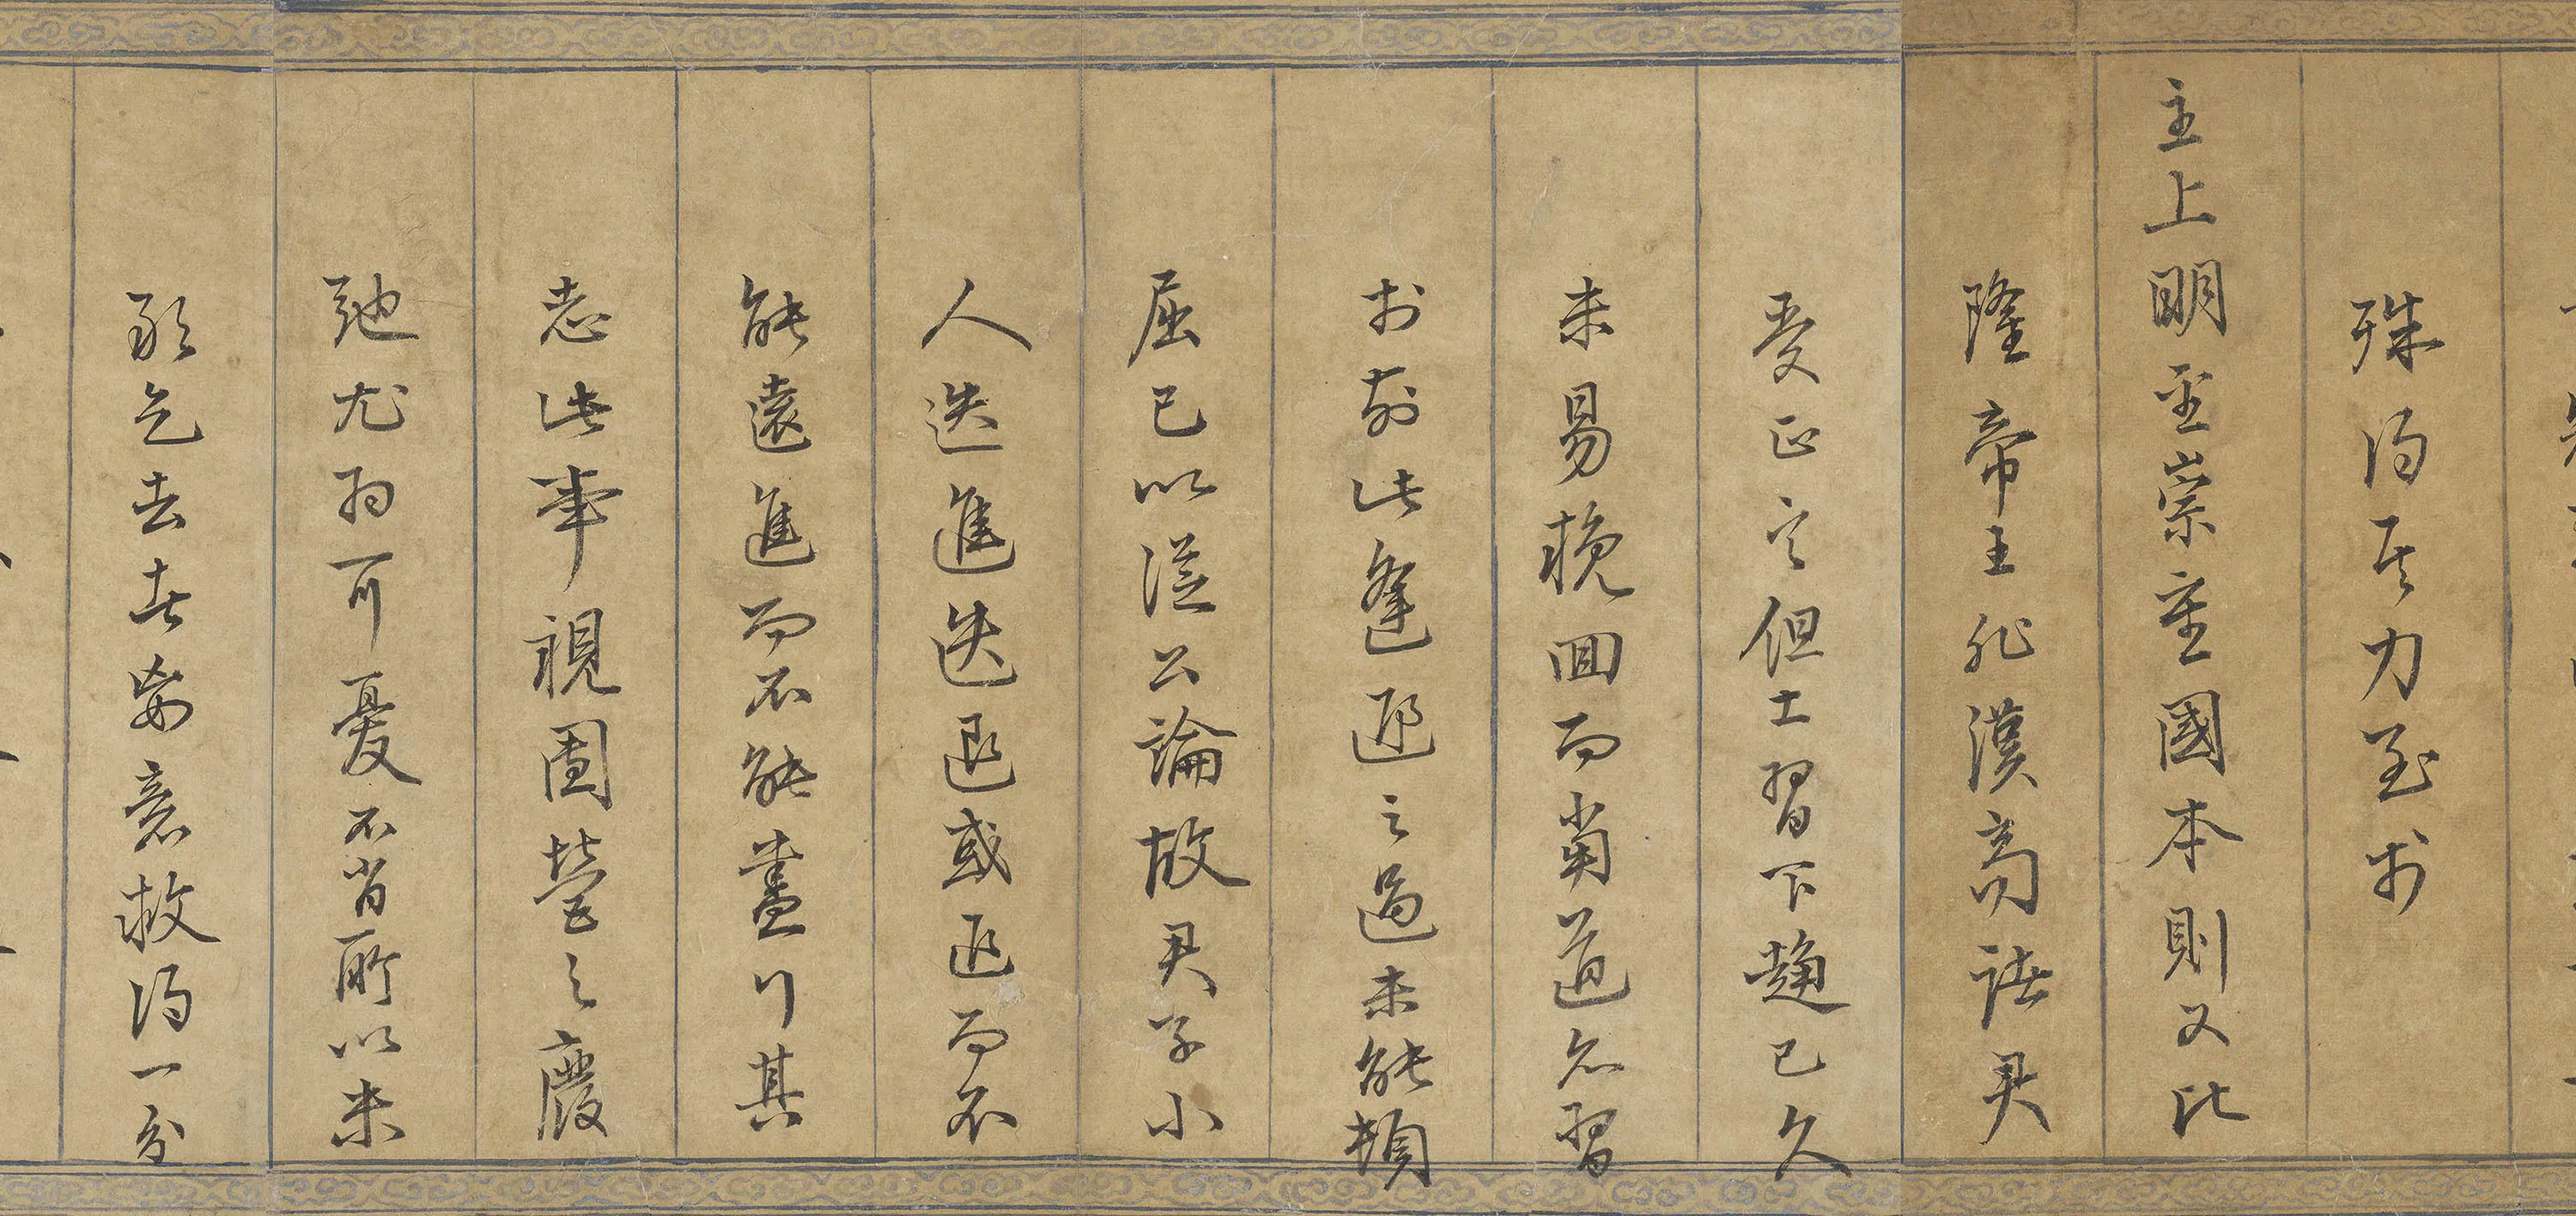 殊得其力至於
主上明聖崇重國本則又比
隆帝王非漢高諸君
受正言但士習下趨已久
未易挽回而當道亦習
於前此逢迎之過未能頓
屈己以從公論故君子小
人迭進迭退或退而不
能遠進而不能盡行其
志此事視團營之廢
弛尤為可憂不肖所以未
敢乞去者妄意救得一分